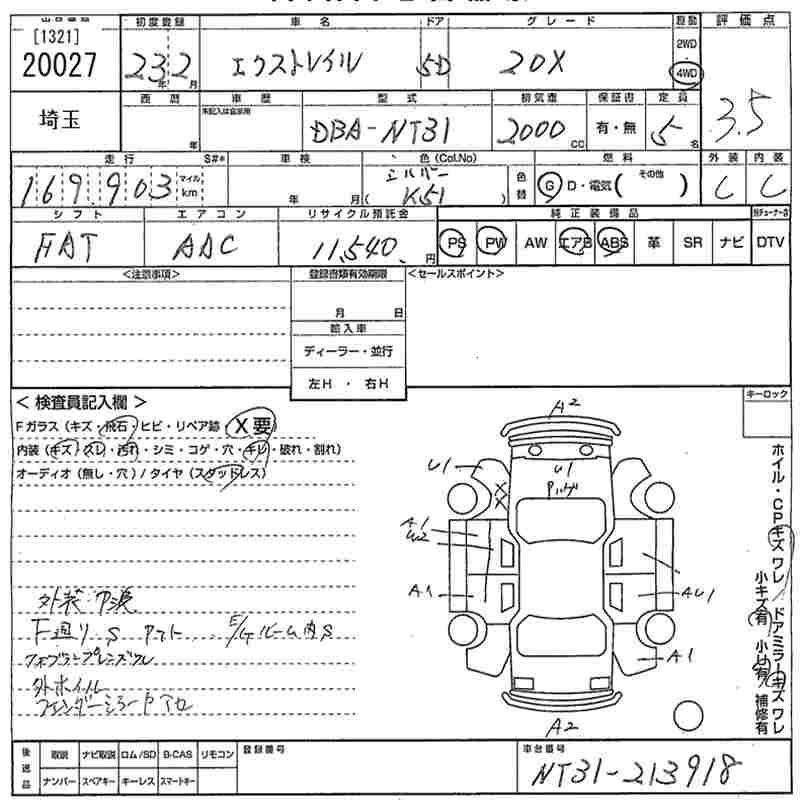 [1321]
20027
初度登録 車名 ドア グレード 駆動 評価点
23年2月 エクストレイル 5D 20X 2WD 4WD 3.5
埼玉
西暦 車歴 型式 排気量 保証書 定員
年 未記入は自家用 DBA-NT31 2000CC 有・無 5名
走行 S#* 車検 色(Col.No) 燃料 外装 内装
169,903 マイル km 年 月 シルバー (K51) 色替 G D・電気( その他 ) C C
シフト エアコン リサイクル預託金 純正装備品
FAT AAC 11,540円 PS PW AW エアB ABS 革 SR ナビ DTV
<注意事項> 登録書類有効期限 <セールスポイント>
月 日
輸入車
ディーラー・並行
左H ・ 右H
<検査員記入欄> キーロック
Fガラス(キズ・飛石・ヒビ・リペア跡 X要)
内装(キズ・スレ・汚れ・シミ・コゲ・穴・キレ・破れ・割れ)
オーディオ(無し・穴)/タイヤ(スタッドレス)
A2
U1 U1
A1
U2
A1 AU1
A1
A2
ホイル・CPキズ ワレ/ドアミラーキズ ワレ
小キズ有 小U有 補修有
F廻りS
E/gルーム内S
外ホイル
後送品 取説 ナビ取説 ロム/SD B-CAS リモコン 登録番号 車台番号
ナンバー スペアキー キーレス スマートキー NT31-213918